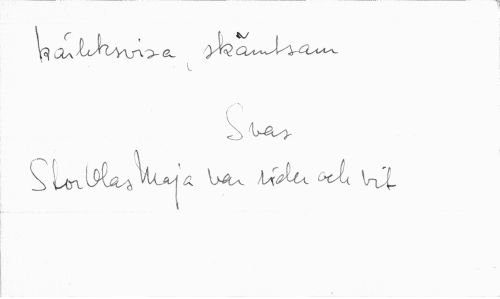 kärleksvisa, skämtsam
Svas
Stor Olas Maja var röder och vit